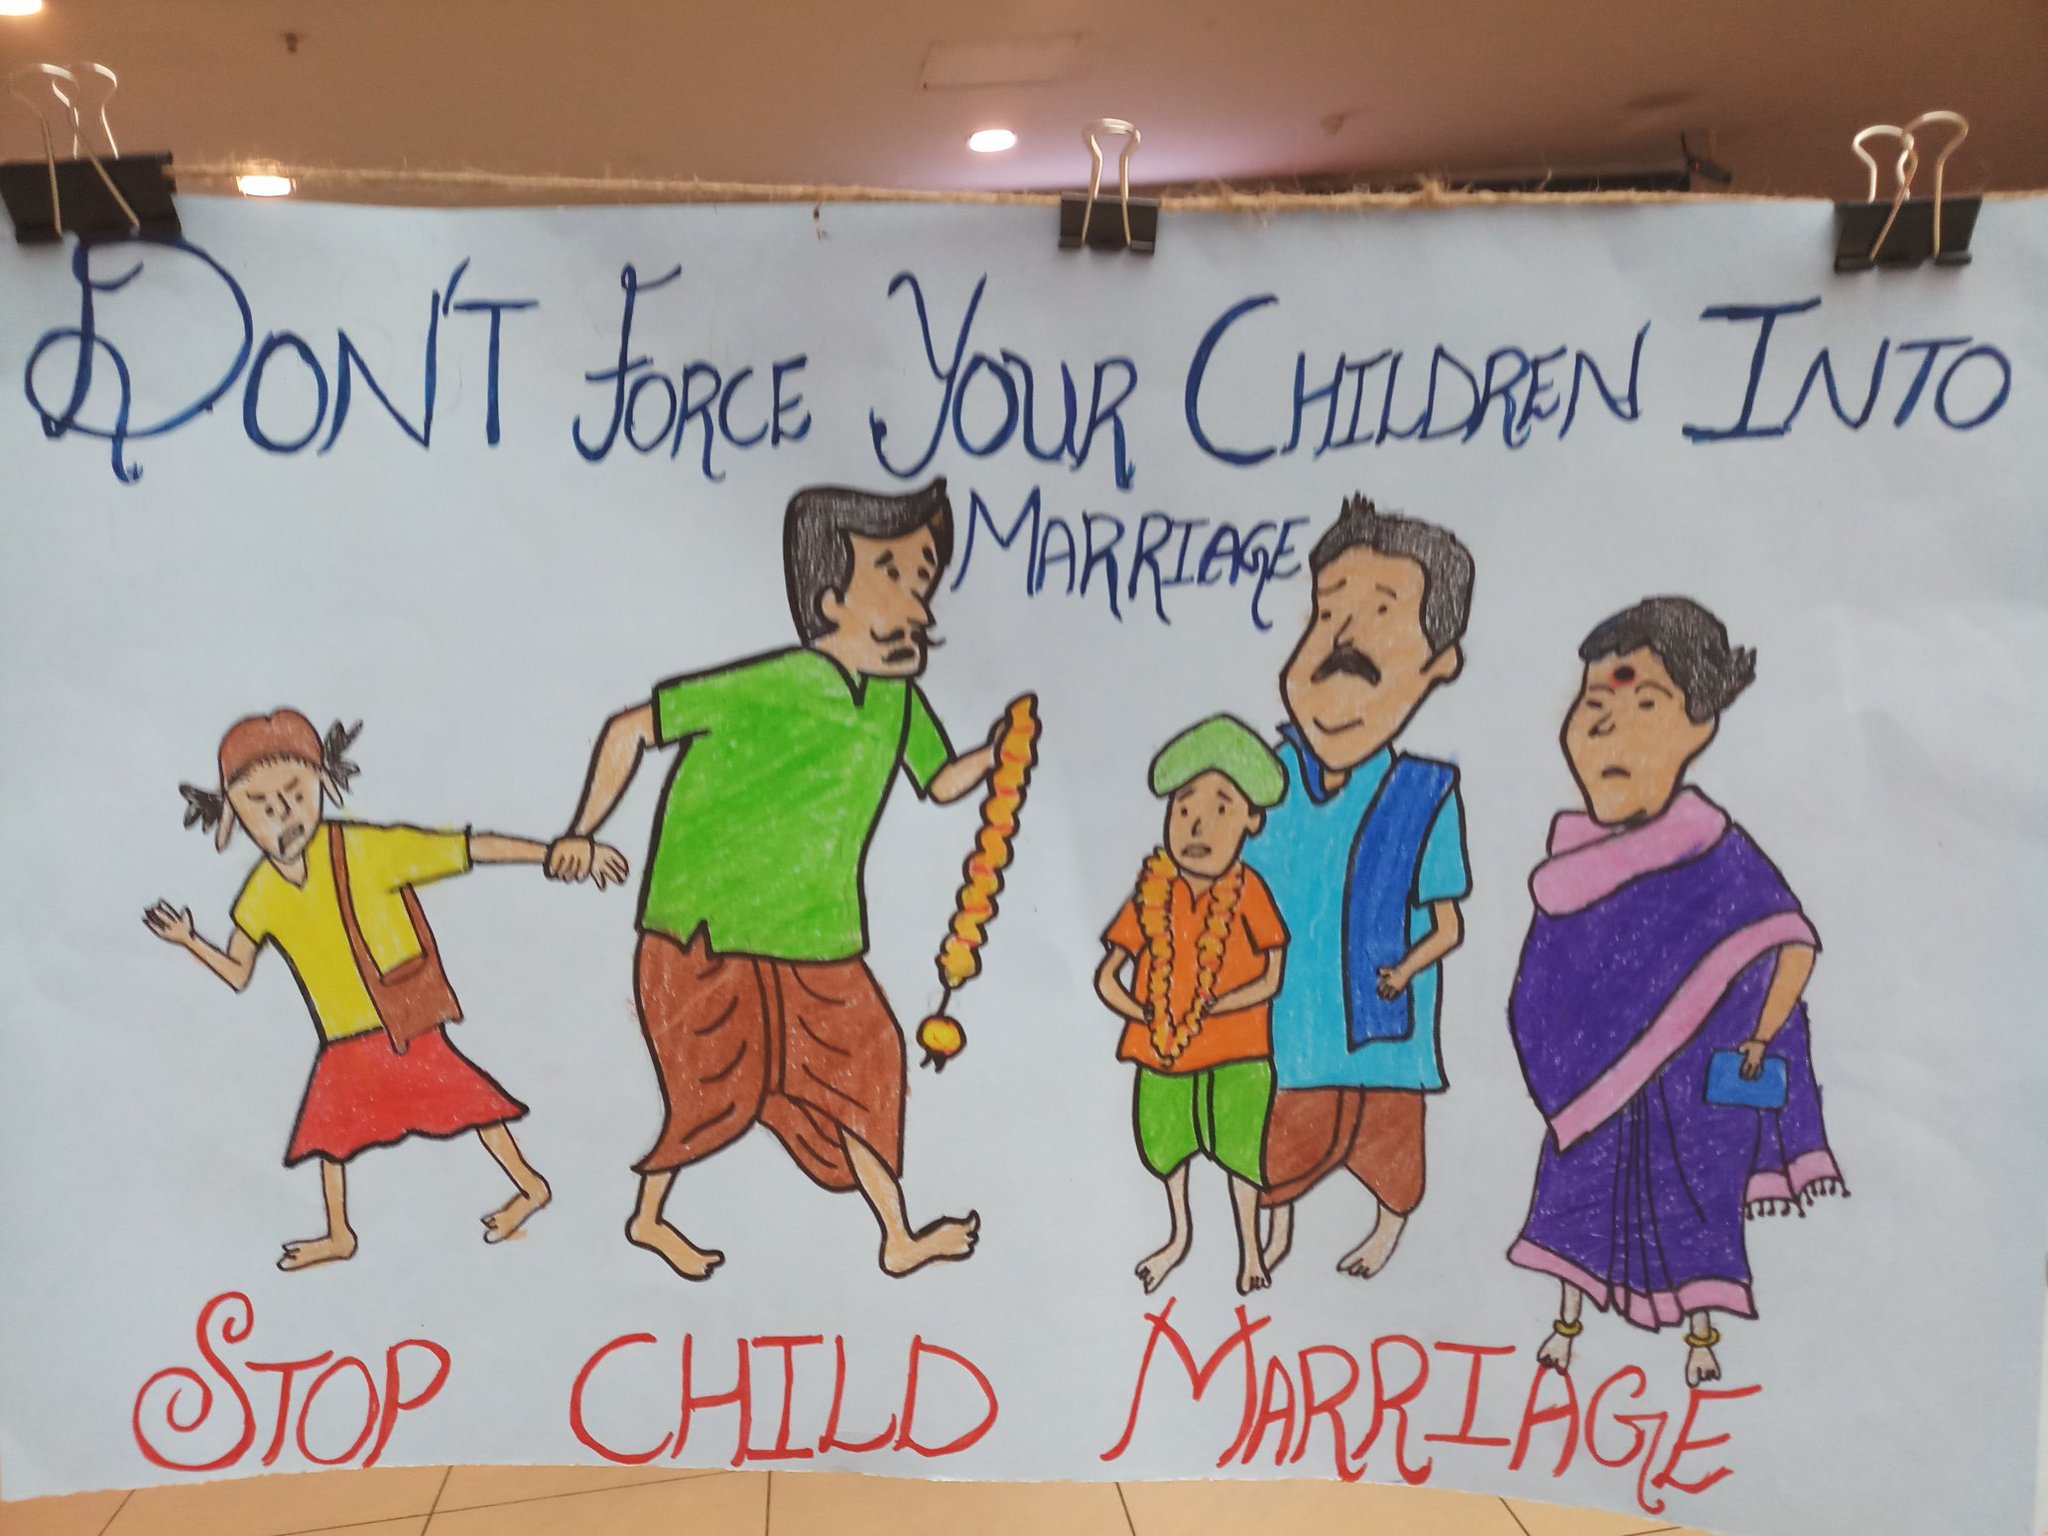 DON'T FORCE YOUR CHILDREN INTO
MARRIAGE
STOP CHILD MARRIAGE